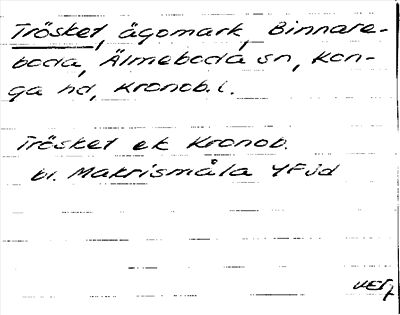 Trösket, ägomark, Binnare-
boda, Älmeboda sn, Kon-
ga hd, Kronob. l.
Trösket ek Kronob.
bl. Makrismåla YFjd